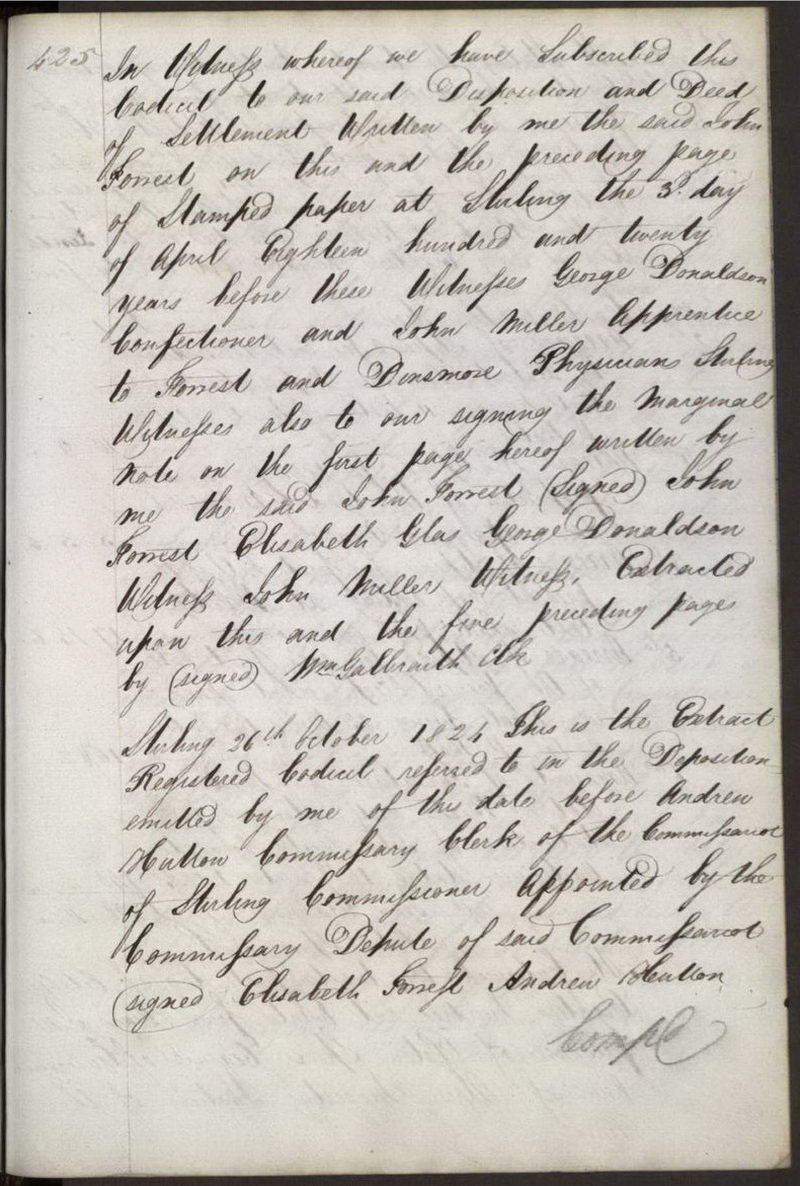 425
In Witness whereof we have Subscribed this
Codicil to our said Disposition and Deed
of Settlement Written by me the said John
Forrest on this and the preceding page
of Stamped paper at Stirling the 3d. day
of April Eighteen hundred and twenty
years before these Witnesses George Donaldson
Confectioner and John Miller Apprentice
to Forrest and Dinsmore Physicians Stirling
Witnesses also to our signing the Marginal
Note on the first page hereof written by
me the said John Forrest (Signed) John
Forrest Elisabeth Glas George Donaldson
Witness John Miller Witness. Extracted
upon this and the five preceding pages
by (signed) Wm Galbraith Clk
Stirling 26th October 1824 This is the Extract
Registered Codicil referred to in the Deposition
emitted by me of this date before Andrew
Hutton Commissary Clerk of the Commissariot
of Stirling Commissioner Appointed by the
Commissary Depute of said Commissariot
(signed Elisabeth Forrest Andrew Hutton